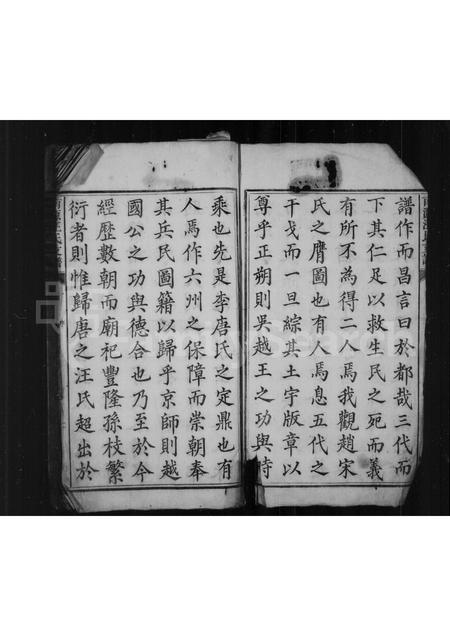 譜作而昌言曰於都哉三代而
下其仁足以救生民之死而義
有所不為得二人焉我觀趙宋
氏之膺圖也有人焉息五代之
干戈而一旦綜其土宇版章以
尊乎正朔則吳越王之功與時
乘也先是李唐氏之定鼎也有
人焉作六州之保障而崇朝奉
其兵民圖籍以歸乎京師則越
國公之功與德合也乃至於今
經歷數朝而廟祀豐隆孫枝繁
衍者則惟歸唐之汪氏超出於